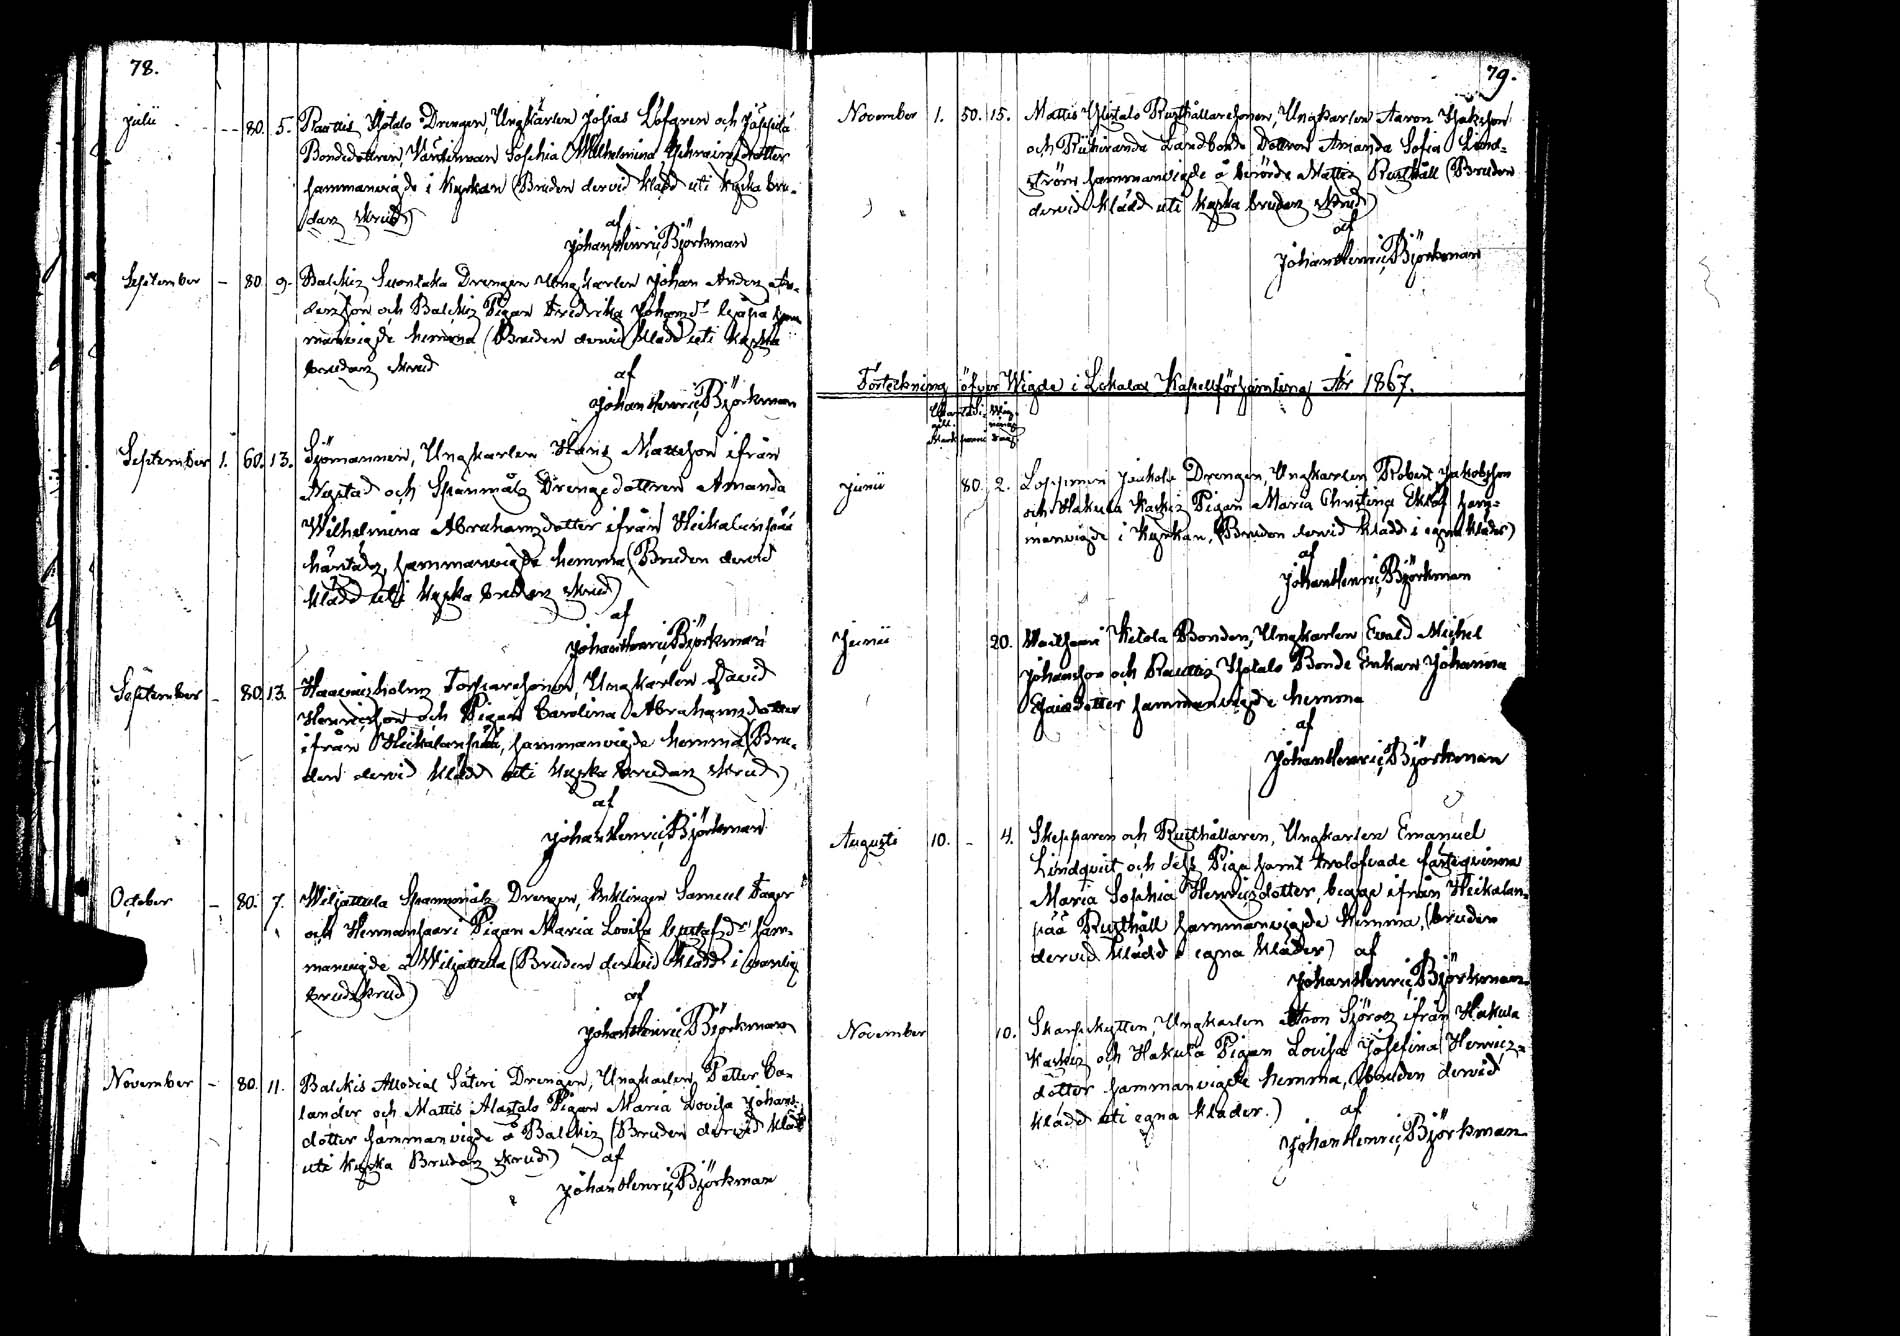 78.
Julii - - 80. 5. Rautis Ylötalo Drengen, Ungkarlen Josias Löfgren och
Bondedottren, Sophia Wilhelmina Ephraimsdotter
sammanvigde i Kyrkan (Bruden dervid klädd uti Kyrka bru-
dans skrud)
af
Johan Henric Björkman
September - 80. 9. Balckis Drengen Ungkarlen Johan Anders An-
dersson och Balckis Pigan Fredrika Johansdr begge sam
manvigde hemma (Bruden dervid klädd uti Kyrka
brudans skrud
af
Johan Henric Björkman
September 1. 60. 13. Sjömannen, Ungkarlen Frans Mattsson ifrån
Nystad och Spanmåls Drengedottren Amanda
Wilhelmina Abrahamsdotter ifrån Heikalanpää
sammanvigde hemma, (Bruden dervid
klädd uti Kyrka brudans skrud)
af
Johan Henric Björkman
September - 80. 13. Torparesonen, Ungkarlen David
Henricsson och Pigan Carolina Abrahamsdotter
ifrån Heikalanpää, sammanvigde hemma, (Bru-
den dervid klädd uti Kyrka brudans skrud)
af
Johan Henric Björkman
October - 80. 7. Wiljattula Spannmåls Drengen, Enklingen Samuel Fager
och Hermansaari Pigan Maria Lovisa Gustafsdr sam-
manvigde å Wiljattula (Bruden dervid klädd i vanlig
brudskrud)
af
Johan Henric Björkman
November - 80. 11. Balckis Allodial Säteri Drengen, Ungkarlen, Petter Ca-
lander och Mattis Alastalo Pigan Maria Lovisa Johans-
dotter sammanvigde å Balckis (Bruden dervid klädd
uti Kyrka Brudans skrud)
af
Johan Henric Björkman
79.
November 1. 50. 15. Mattis Ylistalo Rusthållaresonen, Ungkarlen Aaron Isaksson
och Landbonde Dottren Amanda Sofia Lind-
ström sammanvigde å berörde Mattis Rusthåll (Bruden
dervid klädd uti Kyrka brudans skrud)
af
Johan Henric Björkman
Förteckning öfver Wigde i Lokalax Kapellförsamling År 1867.
Junii 80. 2. Drengen, Ungkarlen Robert Jakobsson
och Hakula Kaskis Pigan Maria Christina Eklöf sam-
manvigde i Kyrkan, (Bruden dervid klädd i egna kläder)
af
Johan Henric Björkman
Junii 20. Ketola Bonden, Ungkarlen Evald Michel
Johansson och Rautis Ylötalo Bonde Enkan Johanna
Esaiedotter sammanvigde hemma
af
Johan Henric Björkman
Augusti 10. - 4. Skepparen och Rusthållaren, Ungkarlen Emanuel
Lindqvist och dess Piga samt trolofvade fästeqvinna
Maria Sophia Henricsdotter, begge ifrån Heikalan-
pää Rusthåll sammanvigde hemma, (bruden
dervid klädd i egna kläder) af
Johan Henric Björkman
November 10. Skarpskytten, Ungkarlen Aron Sjöros ifrån Hakula
Kaskis och Hakula Pigan Lovisa Josefina Henrics-
dotter sammanvigde hemma, (bruden dervid
klädd uti egna kläder.)
af
Johan Henric Björkman